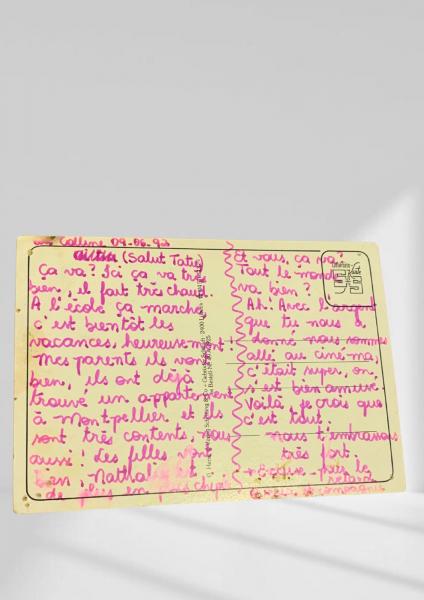 Colline 09.06.93
(Salut Tatie)
Ça va? Ici ça va très
bien, il fait très chaud.
A l'école ça marche
c'est bientôt les
vacances, heureusement!
Mes parents ils vont
bien, ils ont déjà
trouvé un appartement
à Montpellier et ils
sont très contents, nous
aussi! Les filles vont
bien, Nathalie est
de plus en plus
Et vous, ça va?
Tout le monde
va bien?
Ah! Avec l'argent
que tu nous a
donné nous sommes
allé au cinéma,
c'était super, on
s'est bien amusé
Voilà je crois que
c'est tout.
nous t'embrassons
très fort.